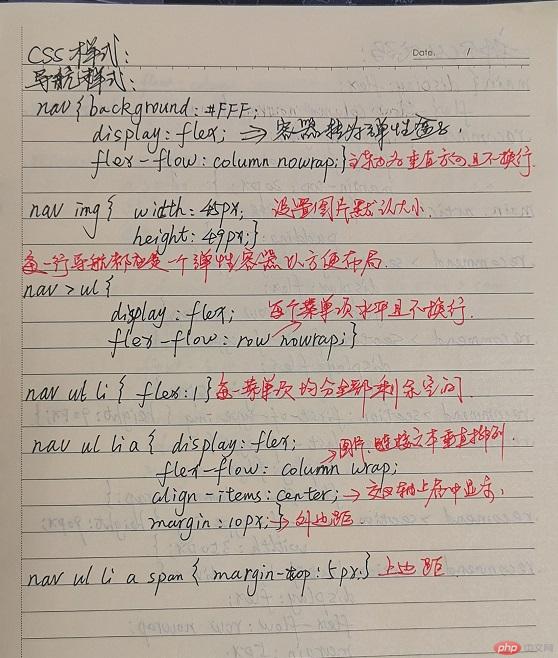 CSS样式：
Date.    /
导航样式：
nav{background:#FFF;
display:flex; → 容器转为弹性盒子.
flex-flow:column nowrap;} 主轴为垂直方向且不换行.
nav img{ width:45px; 设置图片默认大小.
height:49px;}
每一行导航都应是一个弹性容器以方便布局.
nav>ul{
display:flex; 每个菜单项水平且不换行.
flex-flow:row nowrap;}
nav ul li{ flex:1} 每一菜单项均分全部剩余空间.
nav ul li a{ display:flex; 图片.链接文本垂直排列.
flex-flow: column wrap;
align-items:center; → 交叉轴上居中显示,
margin:10px;} → 外边距
nav ul li a span{ margin-top:5px;} 上边距
php 中文网